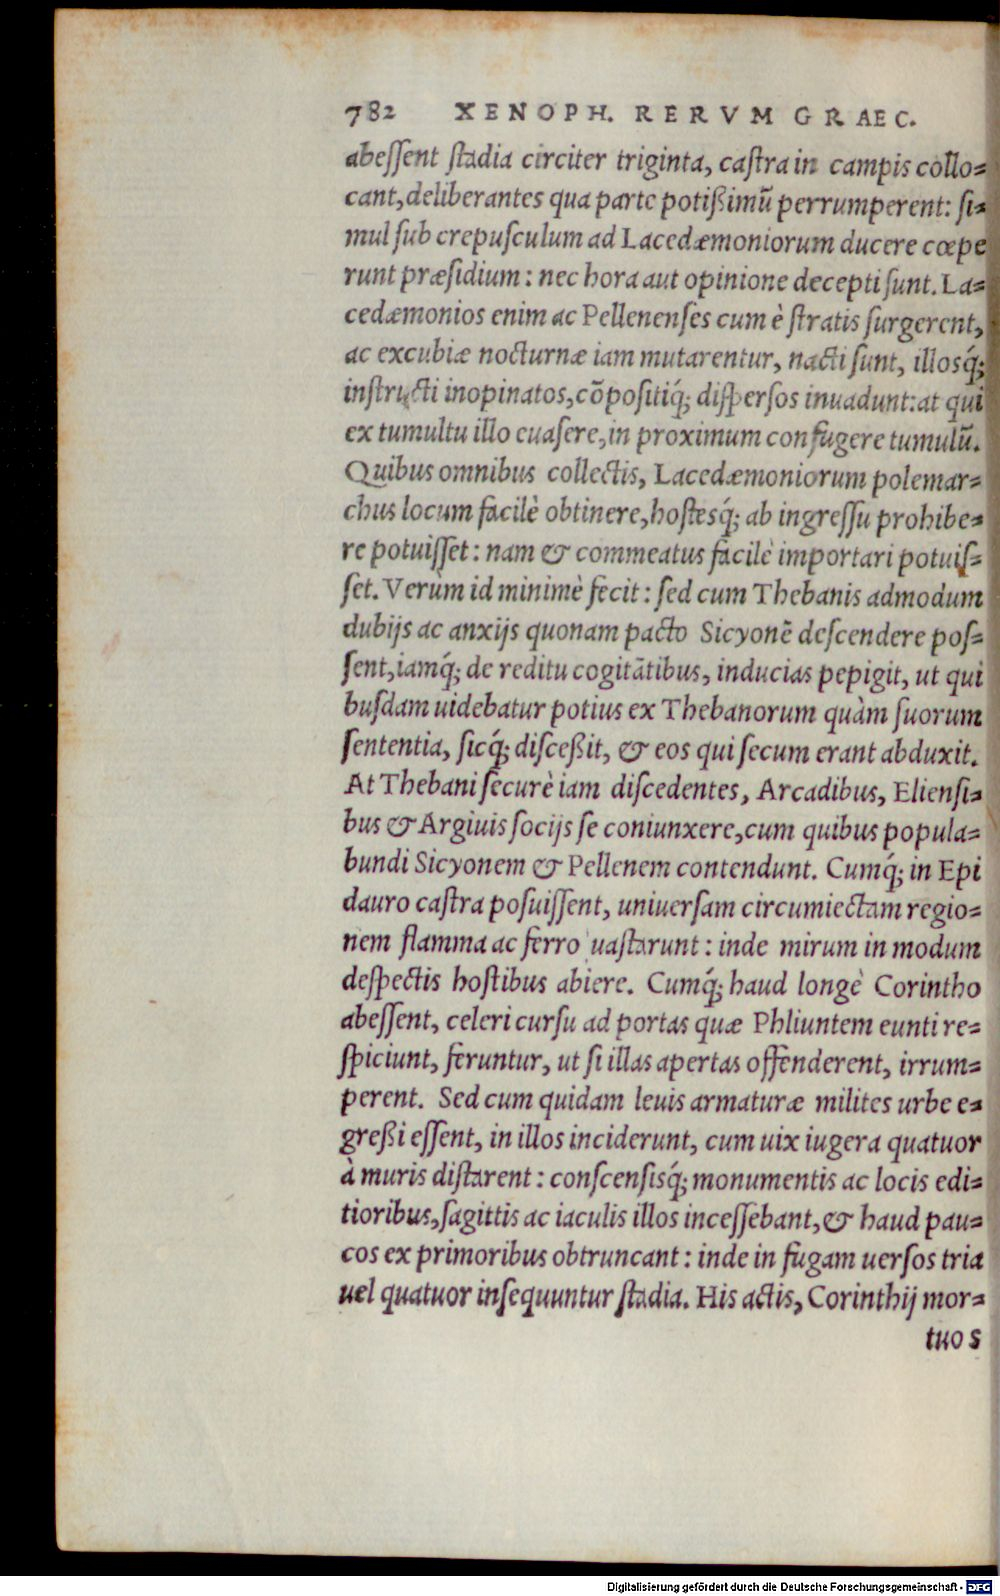 782 XENOPH. RERVM GRAEC.
abeſſent ſtadia circiter triginta, caſtra in campis collo=
cant, deliberantes qua parte potißimũ perrumperent: ſi=
mul ſub crepuſculum ad Lacedæmoniorum ducere cœpe
runt præſidium: nec hora aut opinione decepti ſunt. La=
cedæmonios enim ac Pellenenſes cum è ſtratis ſurgerent,
ac excubiæ nocturnæ iam mutarentur, nacti ſunt, illosq́;
inſtructi inopinatos, cõpositiq́; diſperſos inuadunt: at qui
ex tumultu illo euaſere, in proximum confugere tumulũ.
Quibus omnibus collectis, Lacedæmoniorum polemar=
chus locum facilè obtinere, hoſtesq́; ab ingreſſu prohibe=
re potuiſſet: nam & commeatus facilè importari potuiſ=
ſet. Verùm id minimè fecit: ſed cum Thebanis admodum
dubijs ac anxijs quonam pacto Sicyonẽ deſcendere poſ=
ſent, iamq́; de reditu cogitãtibus, inducias pepigit, ut qui
buſdam uidebatur potius ex Thebanorum quàm ſuorum
ſententia, ſicq́; diſceßit, & eos qui ſecum erant abduxit.
At Thebani ſecurè iam diſcedentes, Arcadibus, Elienſi=
bus & Argiuis ſocijs ſe coniunxere, cum quibus popula=
bundi Sicyonem & Pellenem contendunt. Cumq́; in Epi
dauro caſtra poſuiſſent, uniuerſam circumiectam regio=
nem flamma ac ferro uaſtarunt: inde mirum in modum
deſpectis hoſtibus abiere. Cumq́; haud longè Corintho
abeſſent, celeri curſu ad portas quæ Phliuntem eunti re=
ſpiciunt, feruntur, ut ſi illas apertas offenderent, irrum=
perent. Sed cum quidam leuis armaturæ milites urbe e=
greßi eſſent, in illos inciderunt, cum uix iugera quatuor
à muris diſtarent: conſcenſisq́; monumentis ac locis edi=
tioribus, ſagittis ac iaculis illos inceſſebant, & haud pau=
cos ex primoribus obtruncant: inde in fugam uerſos tria
uel quatuor inſequuntur ſtadia. His actis, Corinthij mor=
tuos
Digitalisierung gefördert durch die Deutsche Forschungsgemeinschaft - DFG